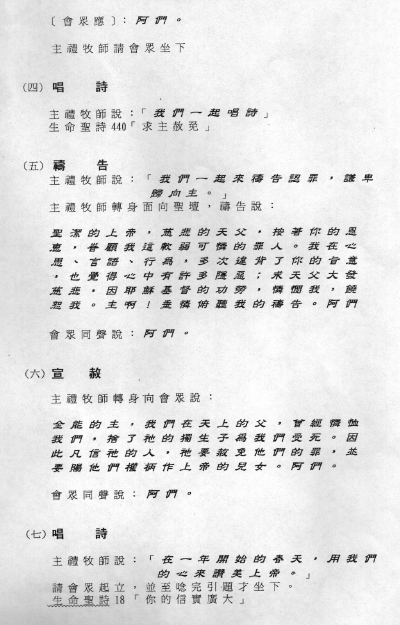 〔會眾應〕：阿們。
主禮牧師請會眾坐下
(四) 唱 詩
主禮牧師說：「我們一起唱詩」
生命聖詩440「求主赦免」
(五) 禱 告
主禮牧師說：「我們一起來禱告認罪，謙卑
歸向主。」
主禮牧師轉身面向聖壇，禱告說：
聖潔的上帝，慈悲的天父，按著你的恩
惠，眷顧我這軟弱可憐的罪人。我在心
思、言語、行為，多次違背了你的旨意
，也覺得心中有許多隱惡；求天父大發
慈悲，因耶穌基督的功勞，憐憫我，饒
恕我。主啊！垂憐俯聽我的禱告。阿們
會眾同聲說：阿們。
(六) 宣 赦
主禮牧師轉身向會眾說：
全能的主，我們在天上的父，曾經憐恤
我們，捨了祂的獨生子為我們受死。因
此凡信祂的人，祂要赦免他們的罪，並
要賜他們權柄作上帝的兒女。阿們。
會眾同聲說：阿們。
(七) 唱 詩
主禮牧師說：「在一年開始的春天，用我們
的心來讚美上帝。」
請會眾起立，並至唸完引題才坐下。
生命聖詩18「你的信實廣大」